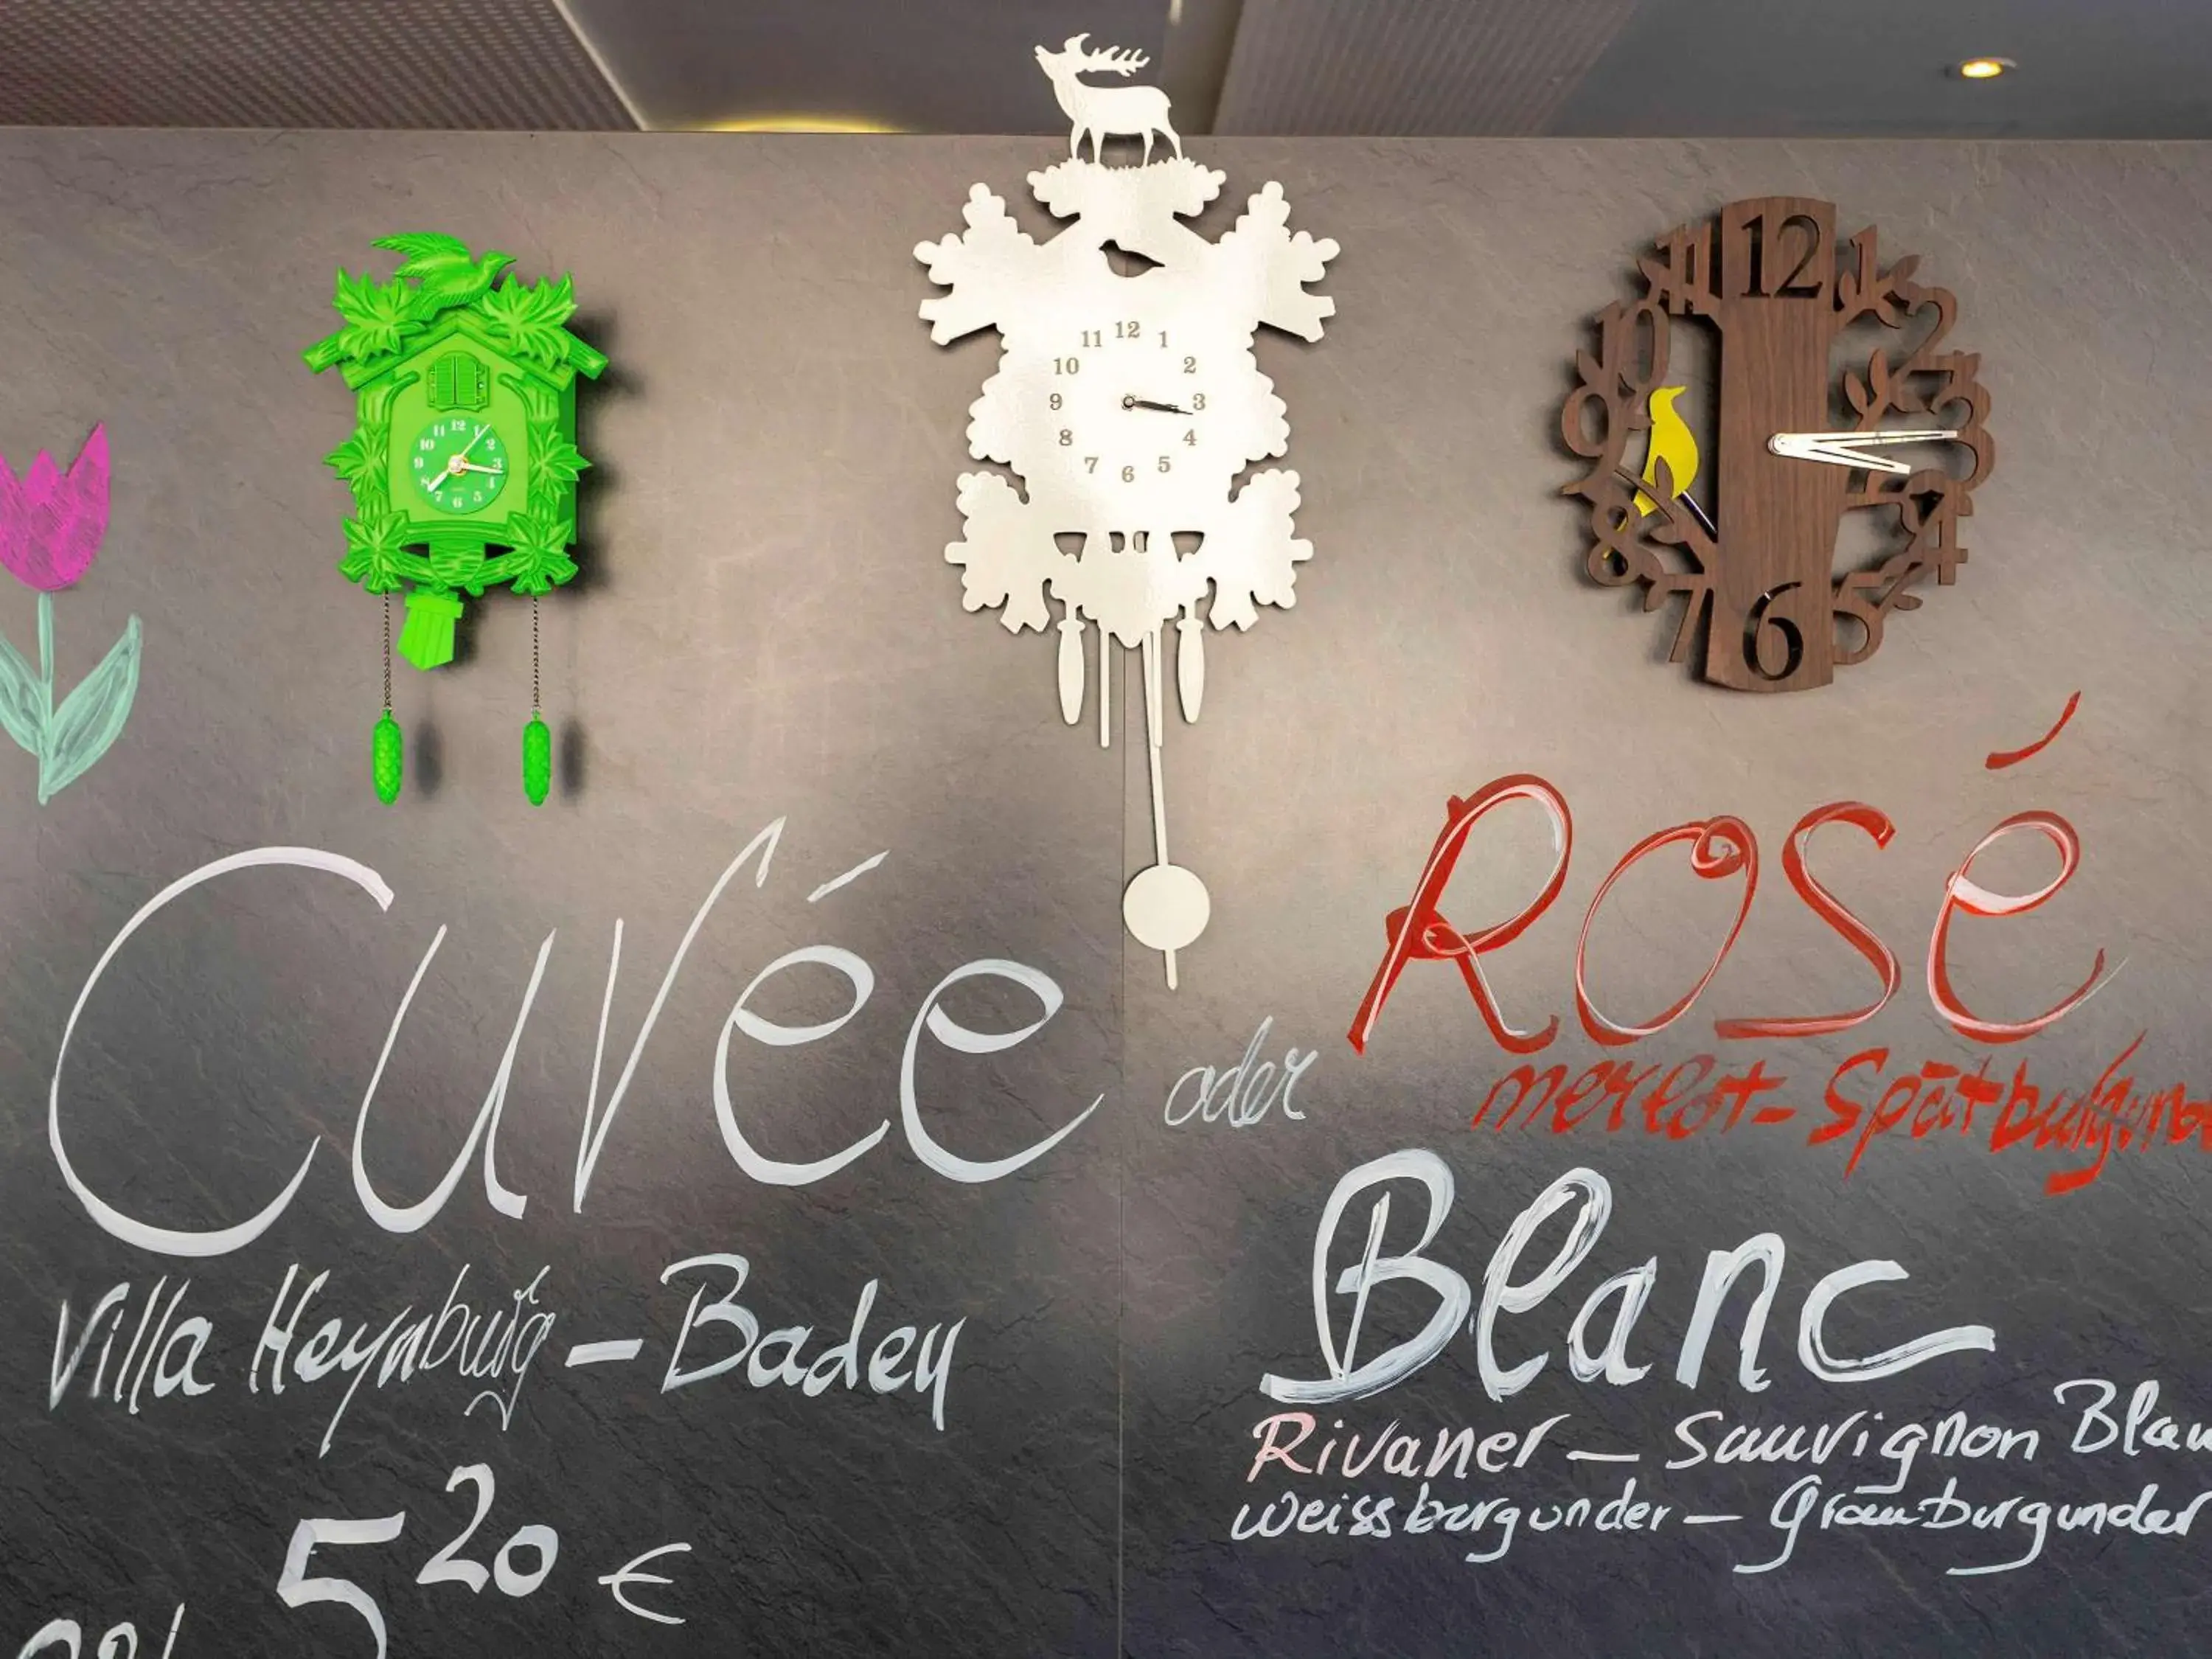 12
11
1
10
2
9
3
8
4
7
5
6
12
11
1
10
2
9
3
8
4
7
5
6
12
11
1
10
2
9
3
8
4
7
5
6
Cuvée
oder
Rosé
merlot - Spätburgund
Villa Heynburg - Baden
5 20 €
Blanc
Rivaner - Sauvignon Blan
weissburgunder - Grauburgunder